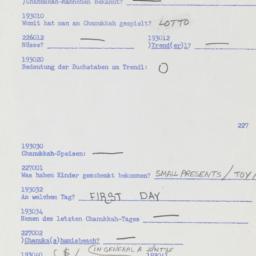 )Chanukkah-Männchen bekannt?
193010
Womit hat man an Chanukkah gespielt? LOTTO
226012 193012
Nüsse? )Trend(er)l?
193020
Bedeutung der Buchstaben am Trendl: O
227
193030
Chanukkah-Speisen:
227001
Was haben Kinder geschenkt bekommen? SMALL PRESENTS / TOY /
193032
An welchem Tag? FIRST DAY
193034
Namen des letzten Chanukkah-Tages
227002
)Chanuka(s)chamisbesch?
(IN GENERAL A